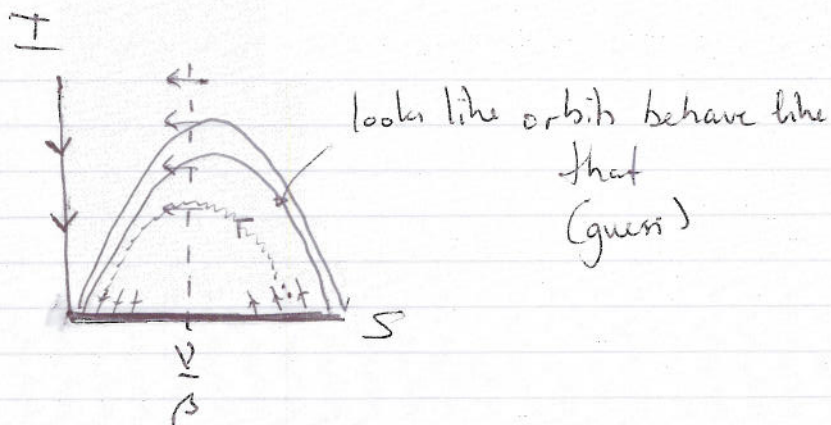 I
looks like orbits behave like
that
(guess)
S
ν
β